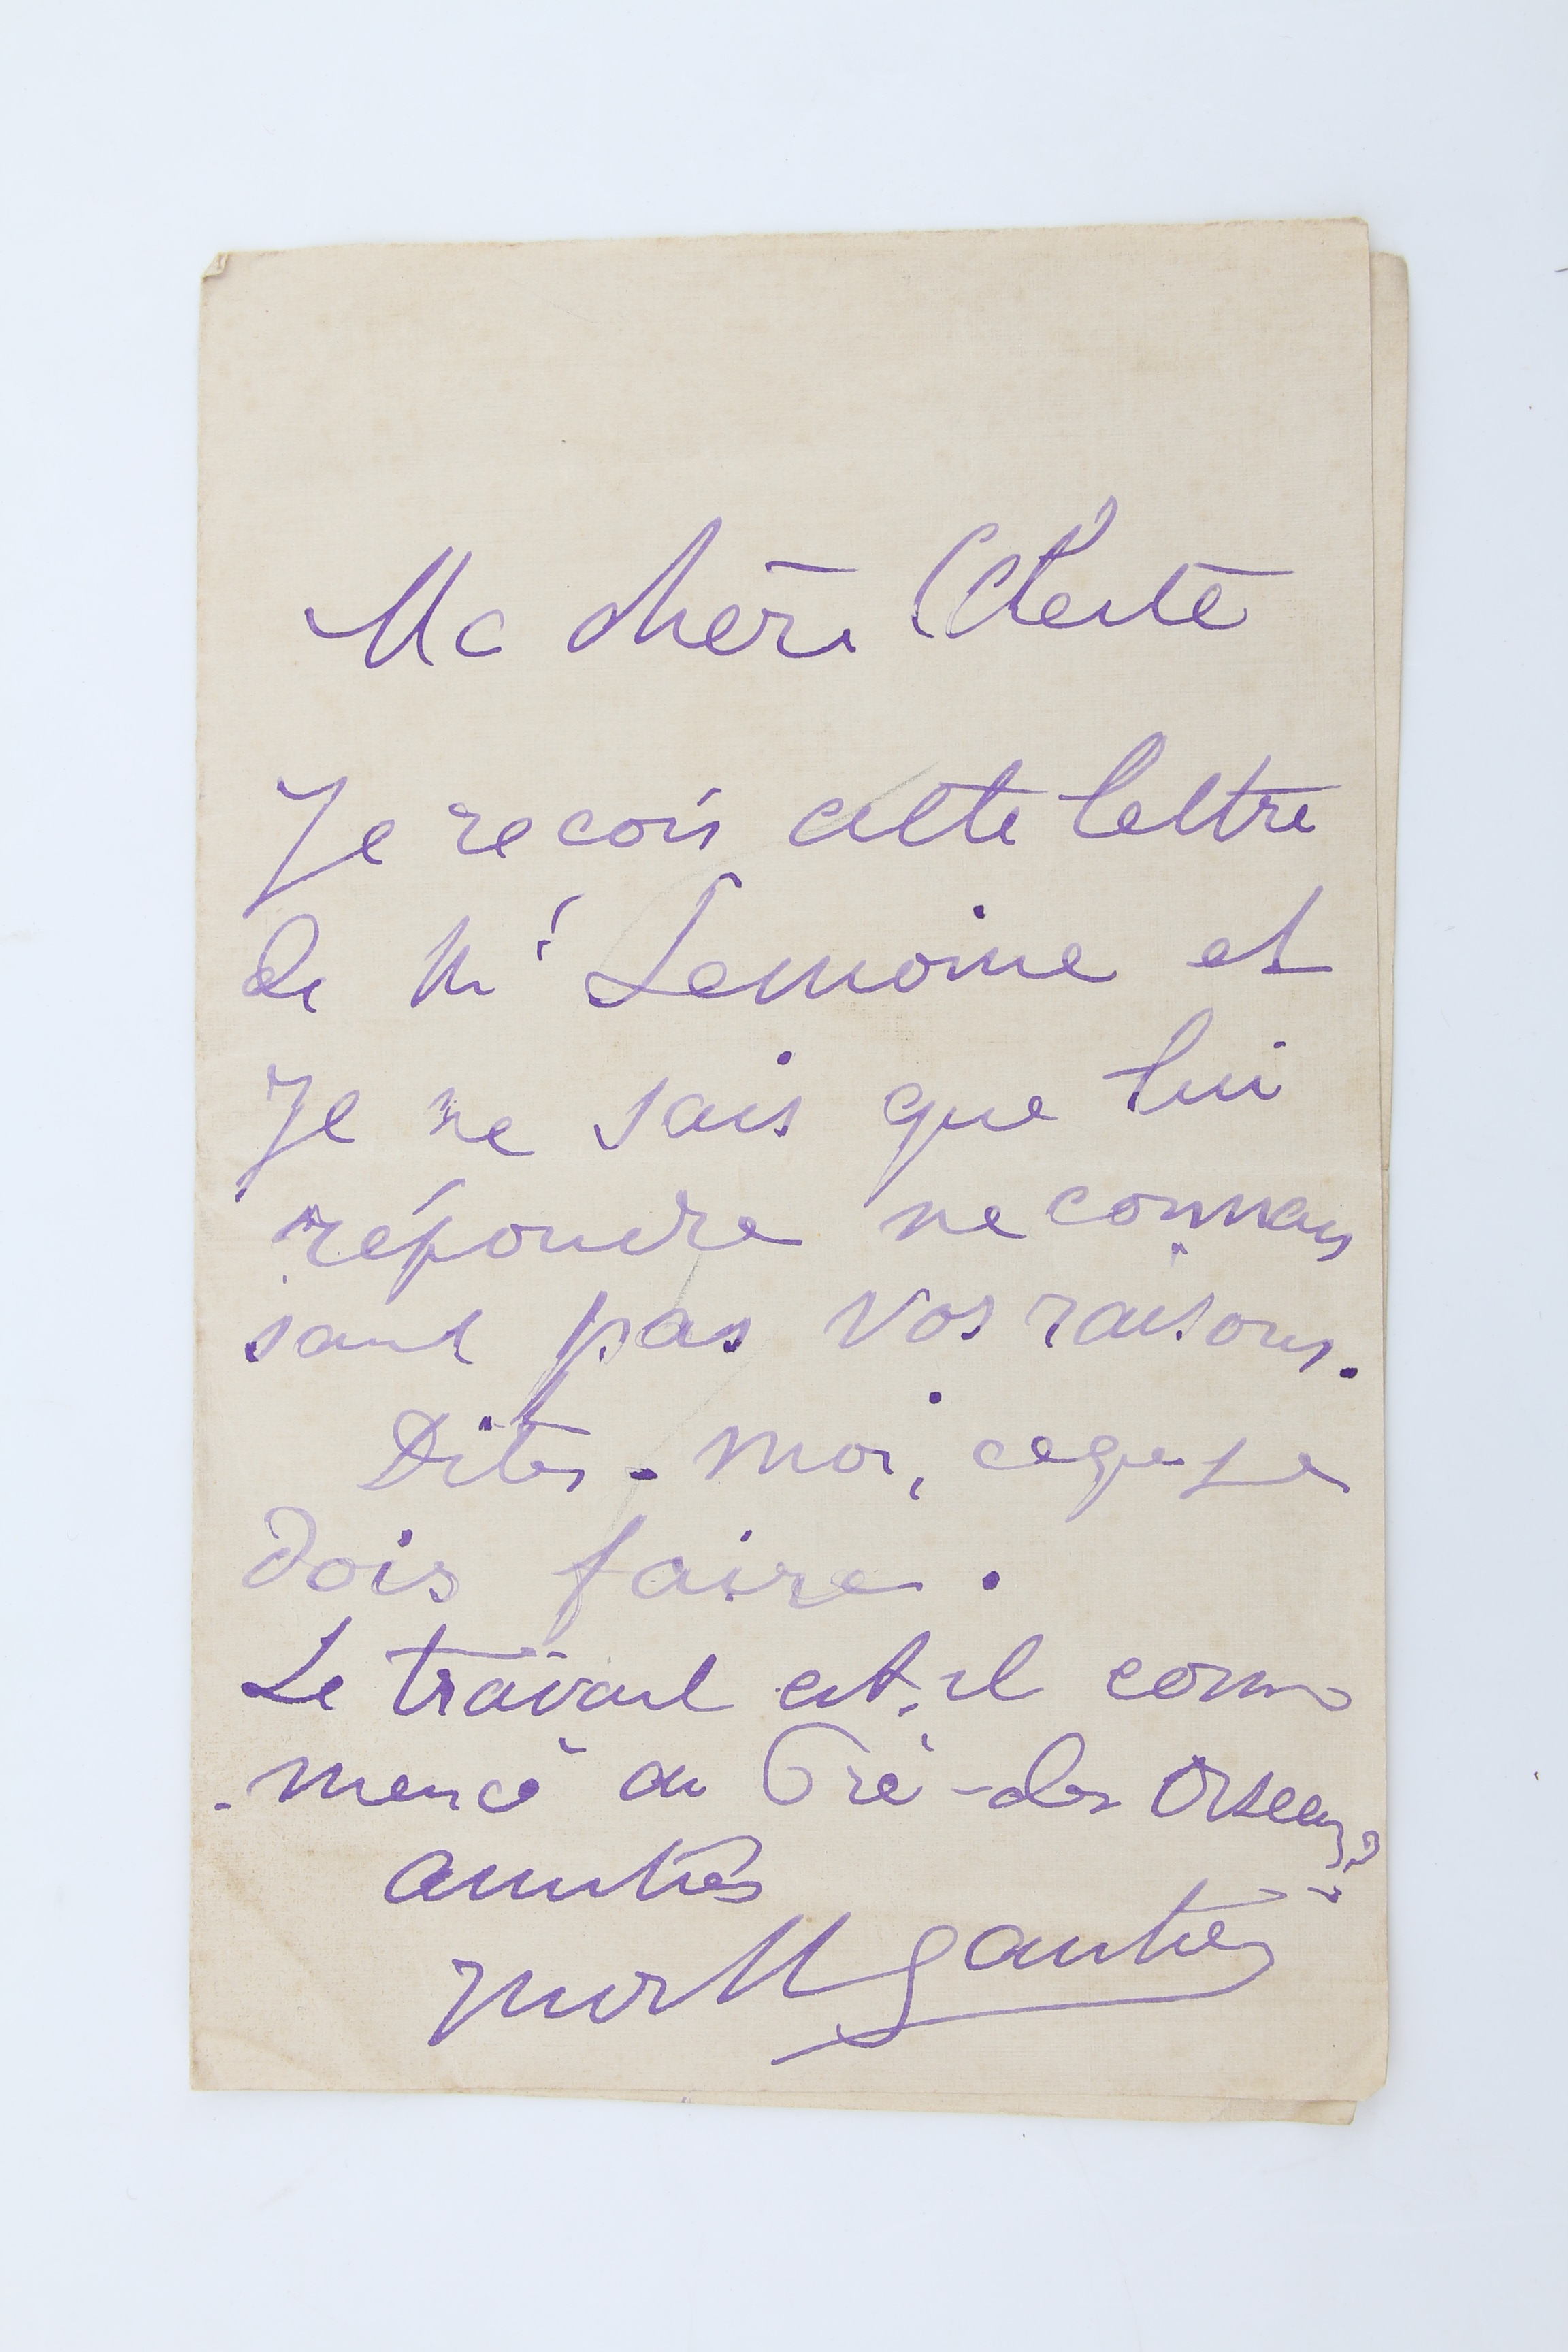 Ma chère Céleste
Je recois cette lettre
de Mr Lemoine et
Je ne sais que lui
répondre ne connais
sant pas vos raisons.
Dites-moi, ce que je
dois faire.
Le travail est-il com
-mencé au Pré-des Oiseaux?
amitiés
Gautier